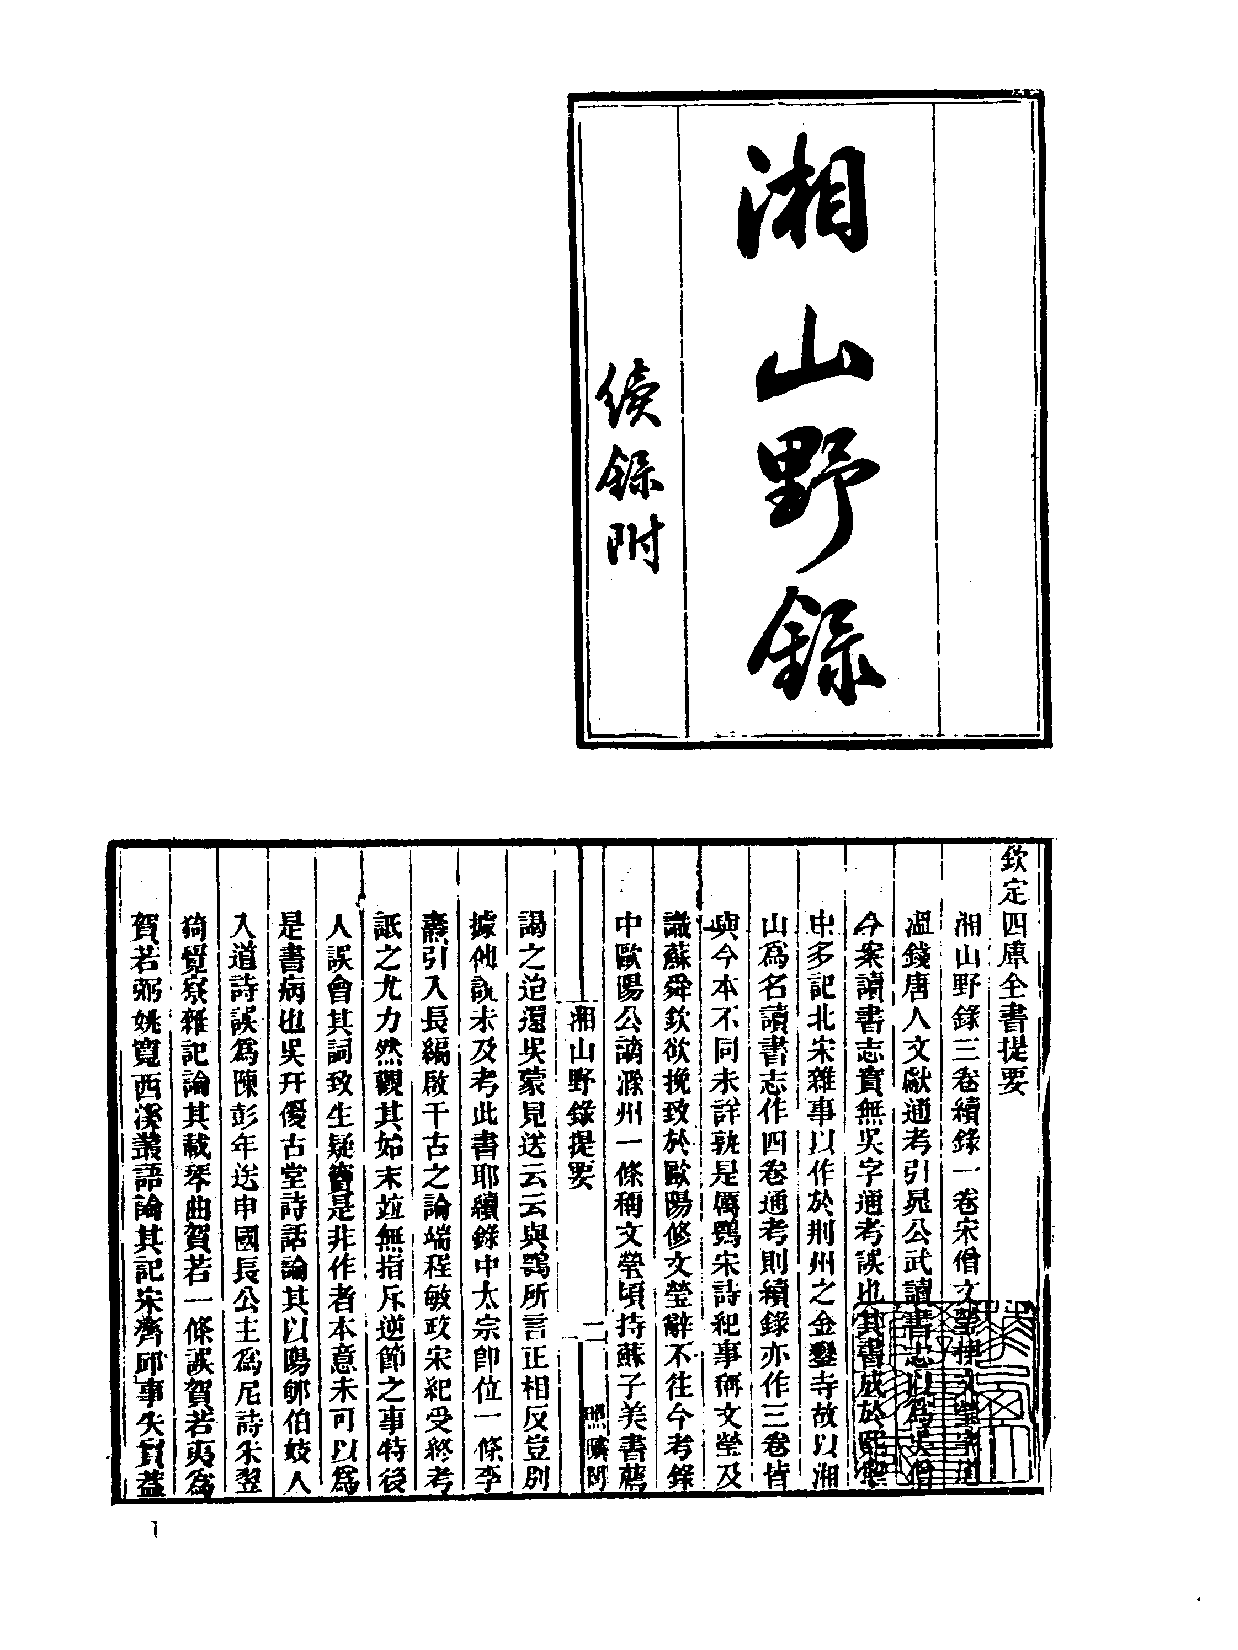 湘山野錄
續錄附
欽定四庫全書提要
湘山野錄三卷續錄一卷宋僧文瑩撰文瑩字道
溫錢唐人文獻通考引晁公武讀書志以為吳僧
今案讀書志實無吳字通考誤也其書成於熙寧
中多記北宋雜事以作於荆州之金鑾寺故以湘
山爲名讀書志作四卷通考則續錄亦作三卷皆
與今本不同未詳孰是厲鶚宋詩紀事稱文瑩及
識蘇舜欽欲挽致於歐陽修文瑩辭不往今考錄
中歐陽公謫滁州一條稱文瑩頃持蘇子美書薦
湘山野錄提要
二
照曠閣
謁之迨還吳蒙見送云云與鶚所言正相反豈別
據他說未及考此書耶續錄中太宗卽位一條李
燾引入長編啟千古之論端程敏政宋紀受終考
詆之尤力然觀其始末竝無指斥逆節之事特後
人誤會其詞致生疑竇是非作者本意未可以爲
是書病也吳幵優古堂詩話論其以陽郇伯妓人
入道詩誤爲陳彭年送申國長公主爲尼詩朱翌
猗覺寮雜記論其載琴曲賀若一條誤賀若夷爲
賀若弼姚寬西溪叢語論其記宋齊邱事失實蓋
1